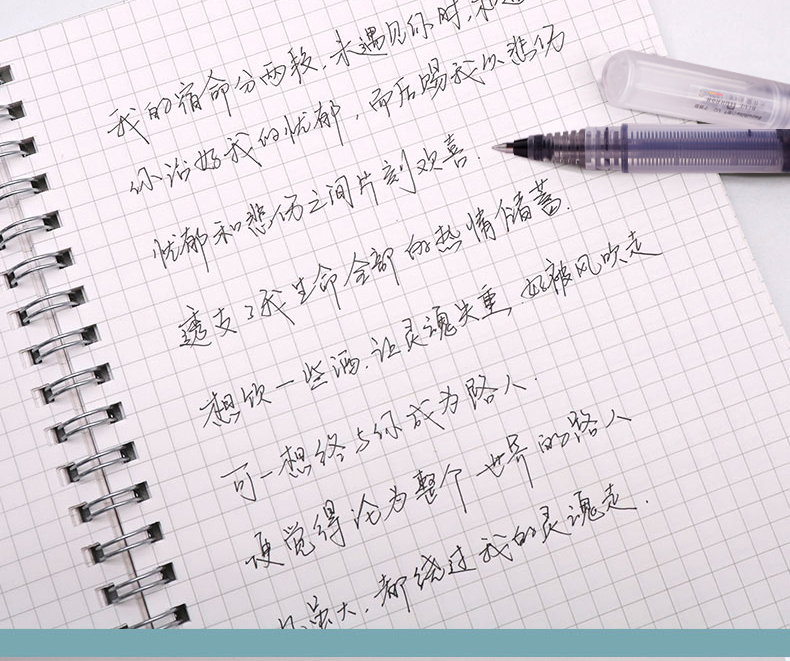 我的宿命分两段，未遇见你时，和遇
你治好我的忧郁，而后赐我以悲伤
忧郁和悲伤之间片刻欢喜.
透支了我生命全部的热情储蓄.
想饮一些酒.让灵魂失重，好被风吹走
可一想终与你成为路人.
便觉得沦为整个世界的路人
风虽大，都绕过我的灵魂走.